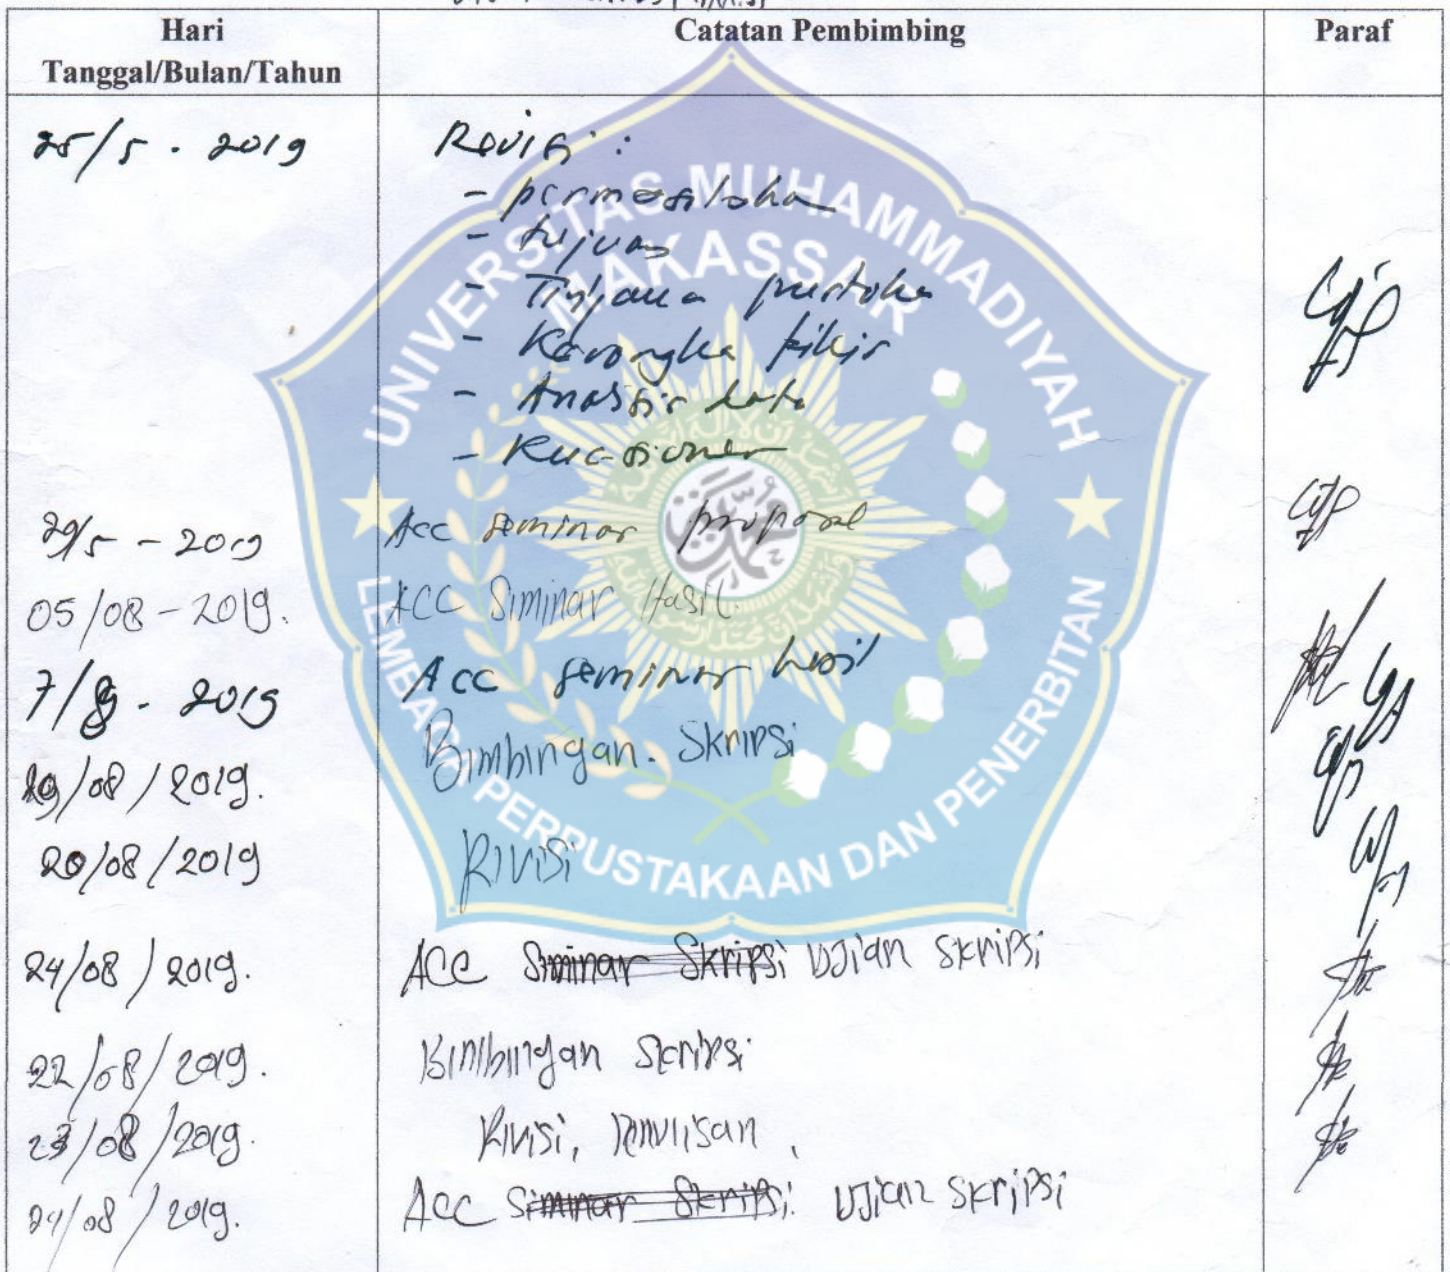 Hari Catatan Pembimbing Paraf
Tanggal/Bulan/Tahun
25/5 - 2019 Revisi :
- permasalaha
- tujuan
- Tinjaua pustaka
- Kerangka pikir
- Analisis data
- Kuesioner
29/5 - 2019 Acc seminar proposal
05/08 - 2019. ACC Siminar Hasil.
7/8 - 2019 Acc seminar hasil
19/08 / 2019. Bimbingan. Skripsi
20/08 / 2019 Rivisi
24/08 / 2019. ACC Siminar Skripsi Ujian Skripsi
22/08/2019. Bimbingan Skripsi
23/08/2019. Rivisi, Penulisan,
24/08/2019. ACC Siminar Skripsi. Ujian Skripsi
UNIVERSITAS MUHAMMADIYAH
MAKASSAR
LEMBAGA PERPUSTAKAAN DAN PENERBITAN